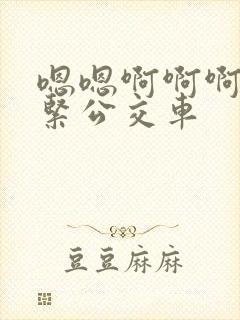 嗯嗯啊啊啊
緊公交車
豆豆麻麻